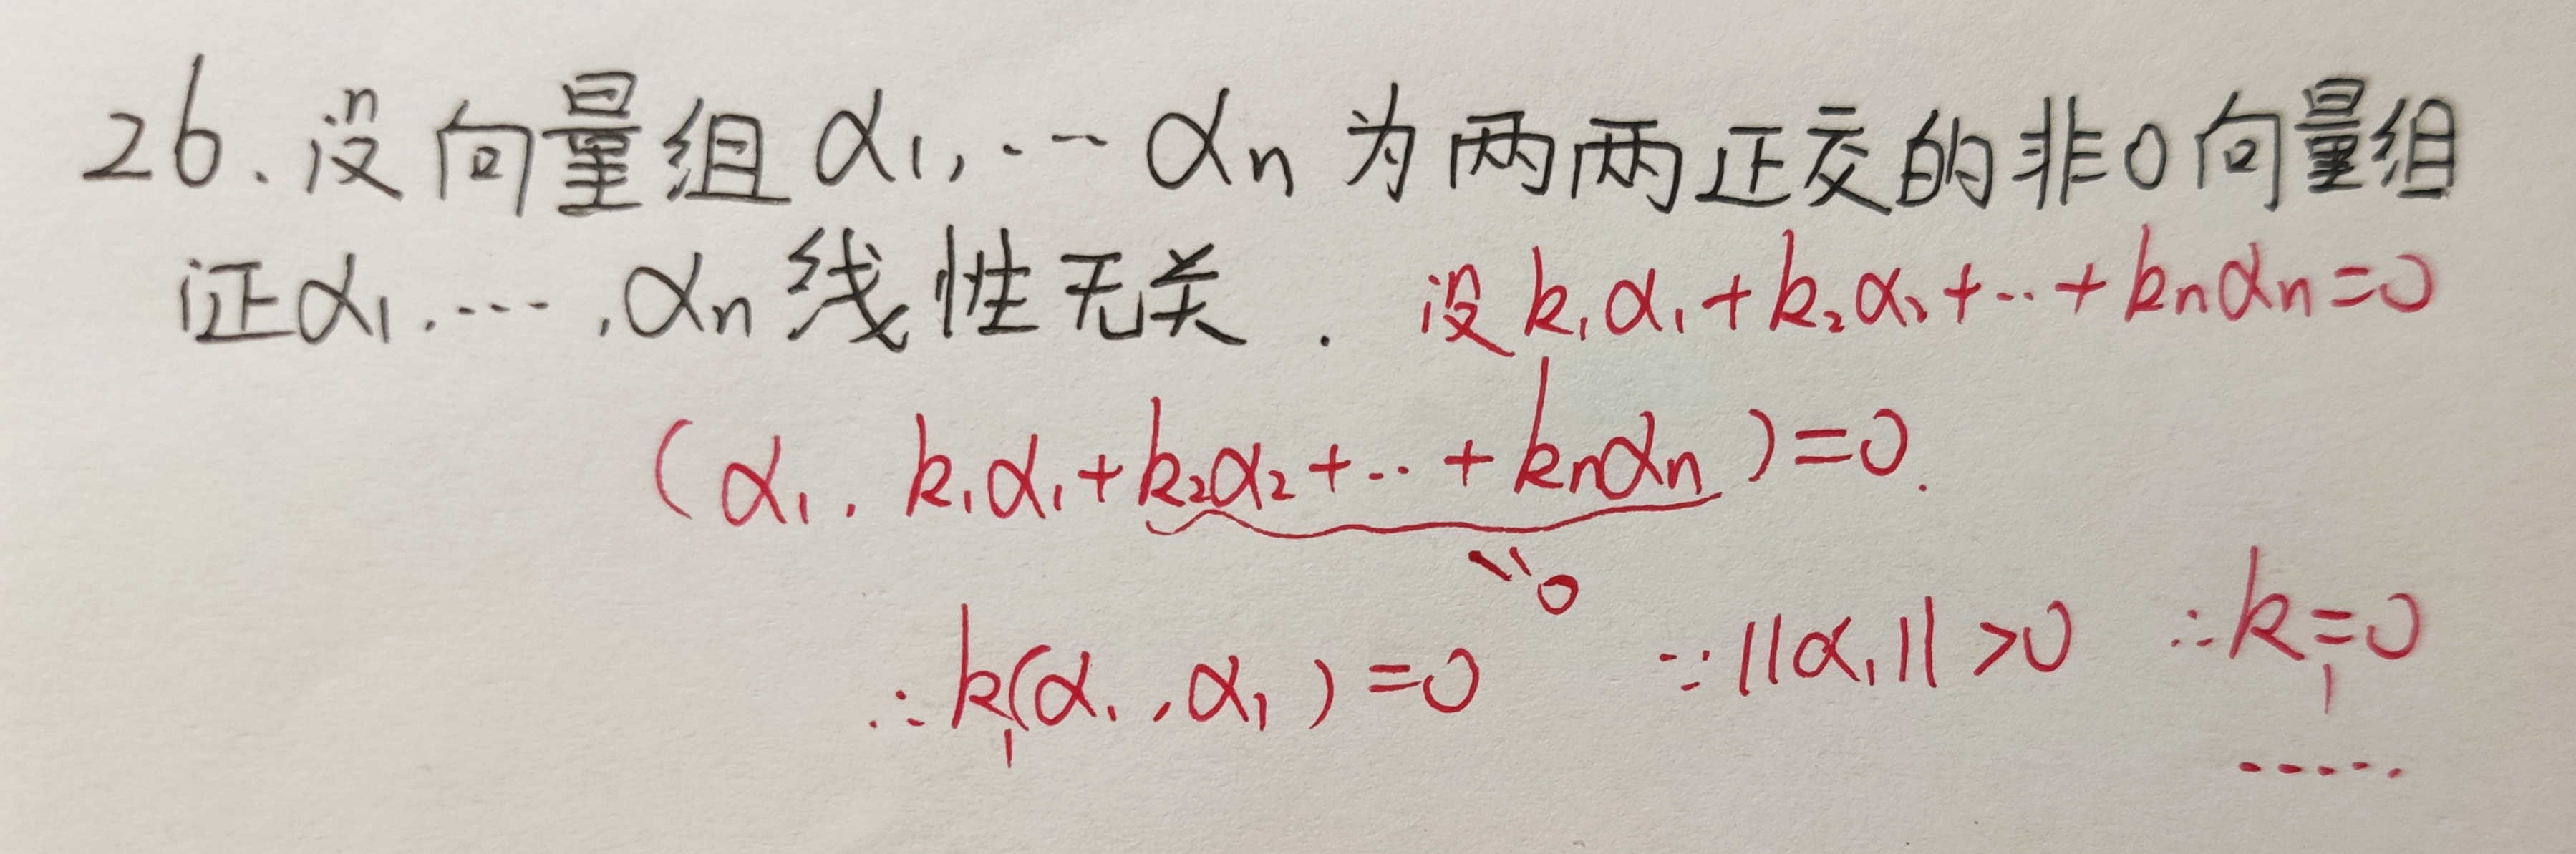 26.设向量组α₁,…αn为两两正交的非0向量组
证α₁.…,αn线性无关. 设k₁α₁+k₂α₂+…+knαn=0
(α₁, k₁α₁+k₂α₂+…+knαn)=0.
=0
∴k₁(α₁,α₁)=0 ∵||α₁||>0 ∴k₁=0
……